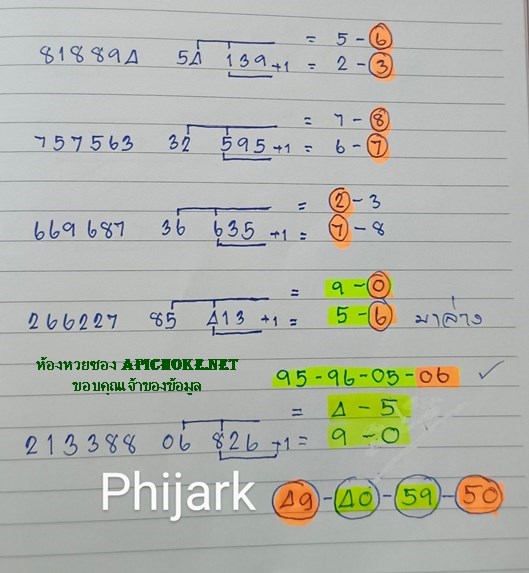 = 5 - 6
81889Δ 5Δ 139 +1 = 2 - 3
= 7 - 8
757563 32 595 +1 = 6 - 7
= 2 - 3
669687 36 635 +1 = 7 - 8
= 9 - 0
266227 85 Δ13 +1 = 5 - 6 มาล่าง
ห้องหวยซอง APICHOKE.NET
ขอบคุณเจ้าของข้อมูล
95 - 96 - 05 - 06 ✓
= Δ - 5
213388 06 826 +1 = 9 - 0
Phijark
Δ9 - Δ0 - 59 - 50